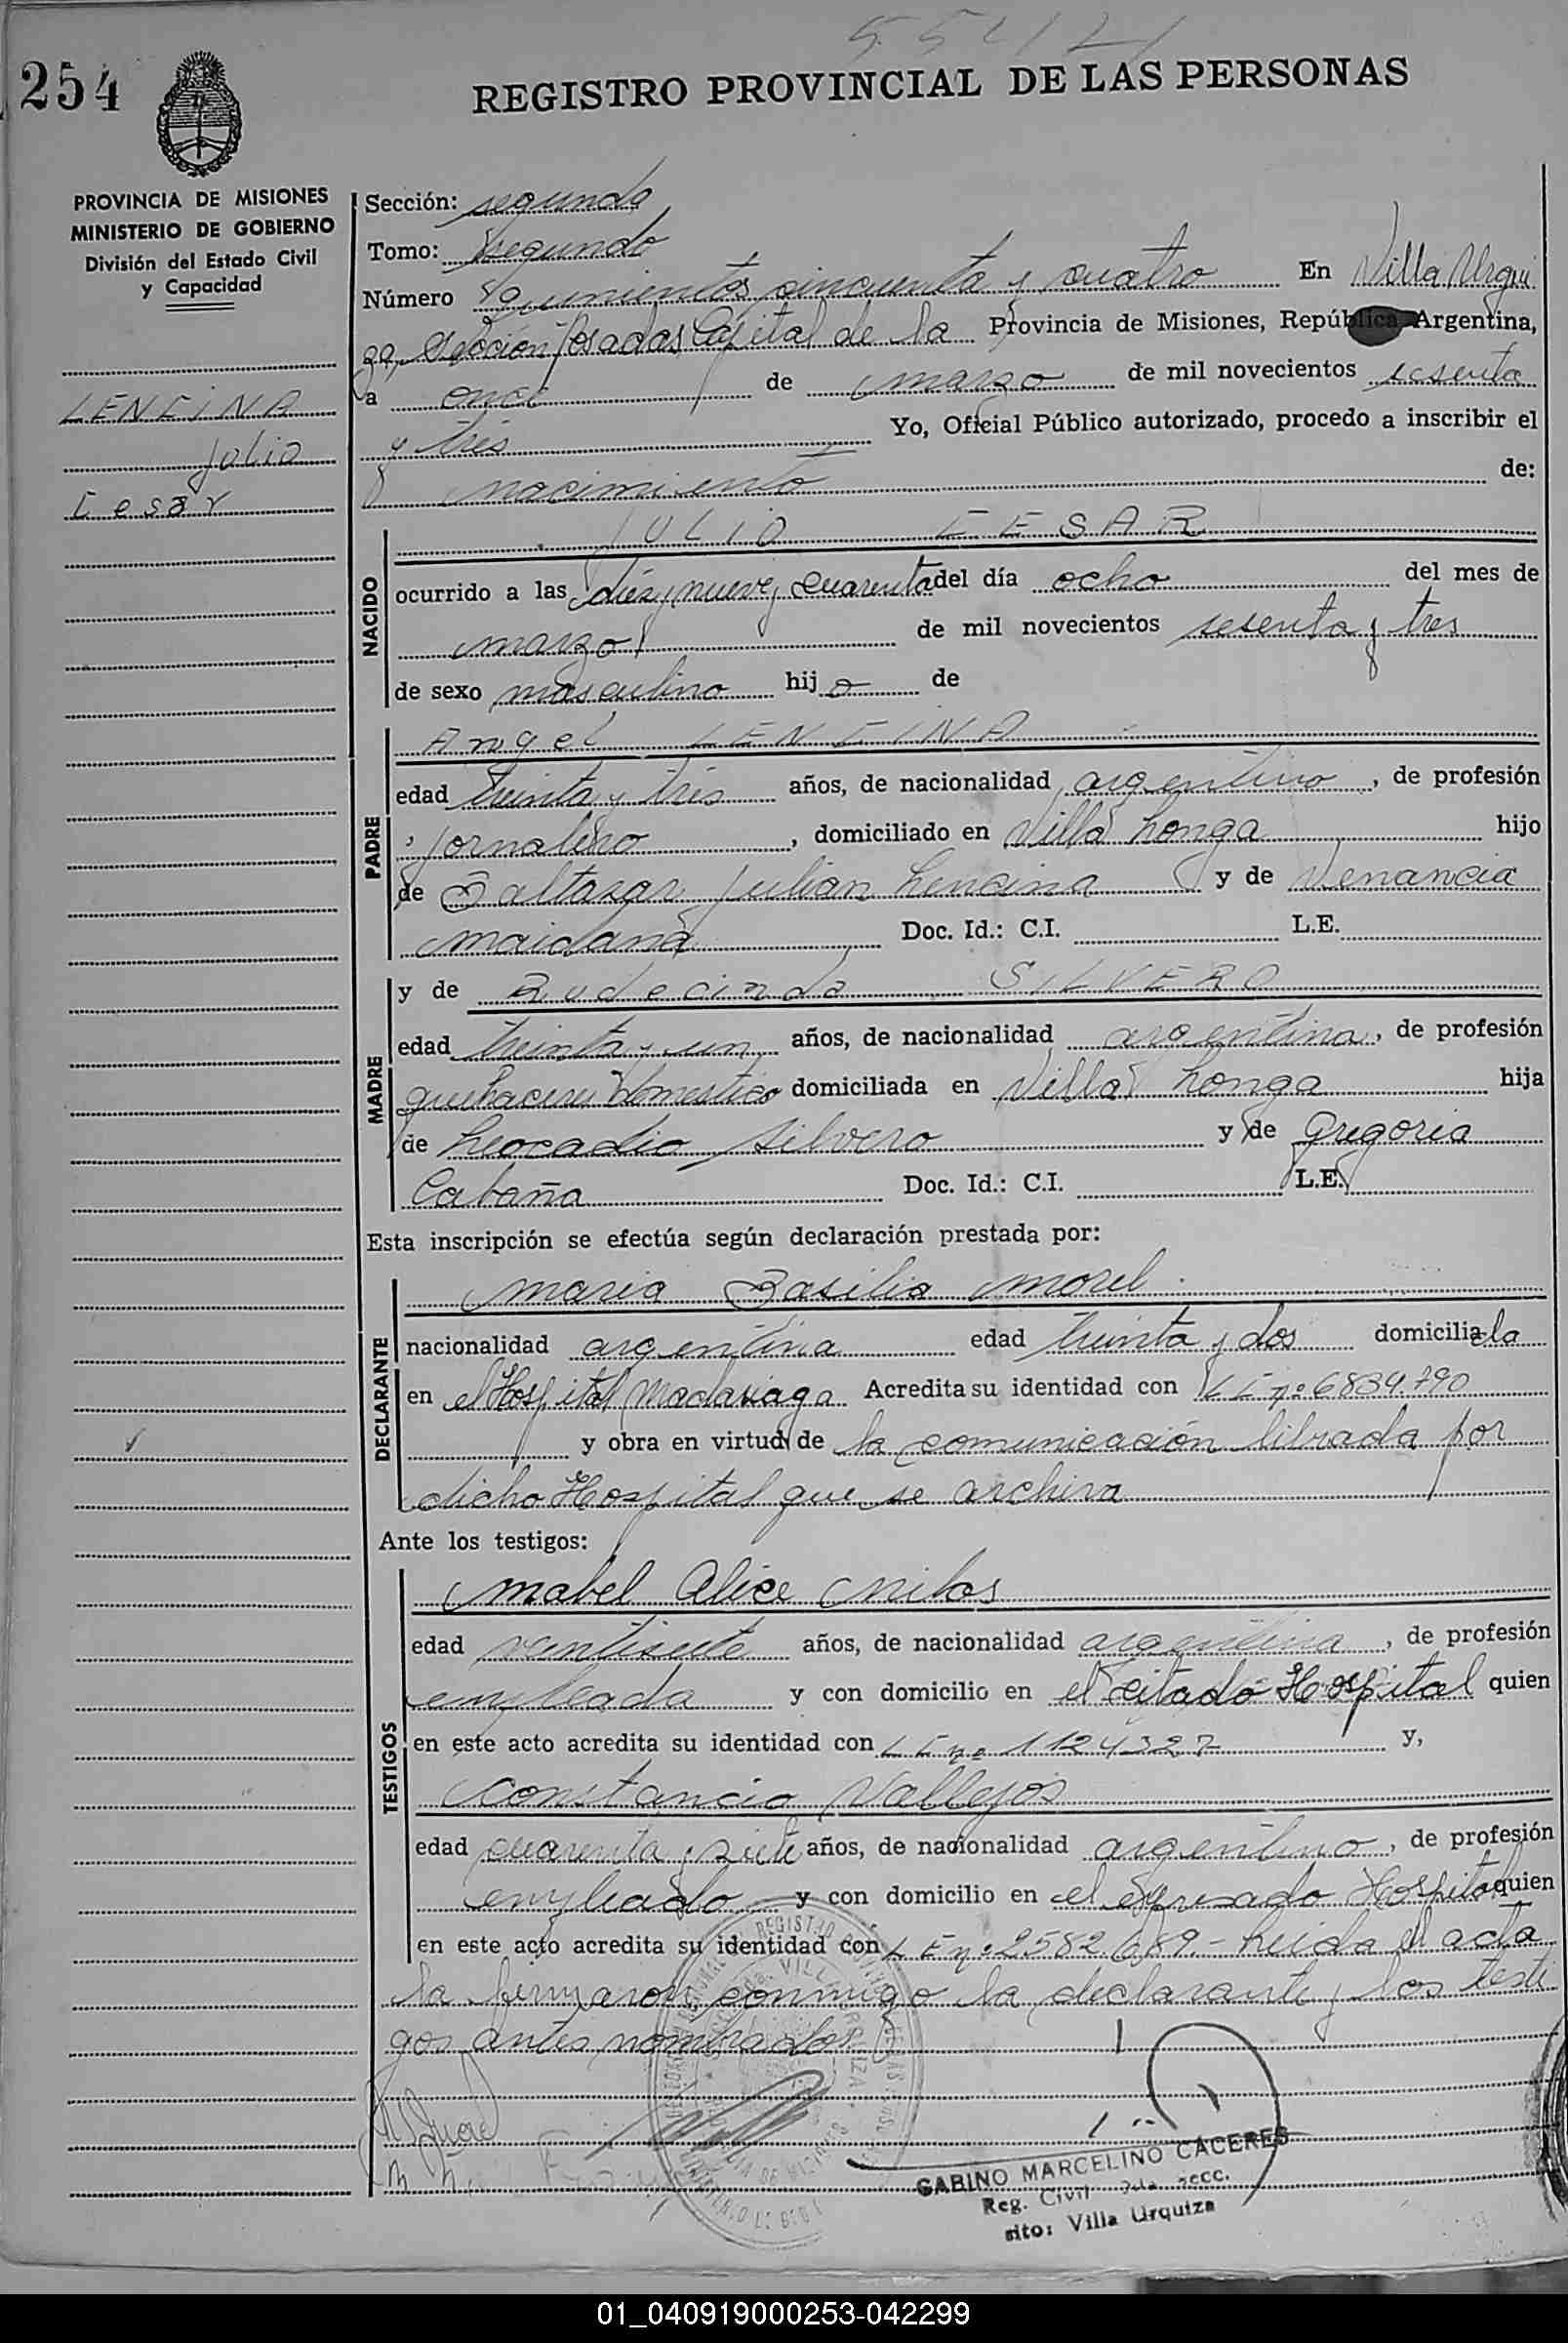 254
REGISTRO PROVINCIAL DE LAS PERSONAS
PROVINCIA DE MISIONES
MINISTERIO DE GOBIERNO
División del Estado Civil
y Capacidad
LENCINA
Julio
Cesar
Sección: segunda
Tomo: segundo
Número quinientos cincuenta y cuatro En Villa Urqui
za, Sección Posadas Capital de la Provincia de Misiones, República Argentina,
a once de marzo de mil novecientos sesenta
y tres Yo, Oficial Público autorizado, procedo a inscribir el
nacimiento de:
NACIDO
JULIO CESAR
ocurrido a las diez y nueve y cuarenta del día ocho del mes de
marzo de mil novecientos sesenta y tres
de sexo masculino hijo de
PADRE
Angel LENCINA
edad treinta y tres años, de nacionalidad argentino, de profesión
jornalero, domiciliado en Villa Longa hijo
de Baltazar Julian Lencina y de Venancia
Maidana Doc. Id.: C.I. L.E.
MADRE
y de Rudecinda SILVERO
edad treinta y un años, de nacionalidad argentina, de profesión
quehaceres domestico domiciliada en Villa Longa hija
de Leocadio Silvero y de Gregoria
Cabaña Doc. Id.: C.I. L.E.
Esta inscripción se efectúa según declaración prestada por:
DECLARANTE
Maria Basilia Morel
nacionalidad argentina edad treinta y dos domiciliada
en el Hospital Madariaga Acredita su identidad con LE nº 6839.790
y obra en virtud de la comunicación librada por
dicho Hospital que se archiva
Ante los testigos:
TESTIGOS
Mabel Alice
edad veintisiete años, de nacionalidad argentina, de profesión
empleada y con domicilio en el citado Hospital quien
en este acto acredita su identidad con LE nº 1124327 y,
Constancio Vallejos
edad cuarenta y siete años, de nacionalidad argentino, de profesión
empleado y con domicilio en el Hospital quien
en este acto acredita su identidad con LE nº 2582.689.- Leida el acta
la firmaron conmigo la declarante y los testi
gos antes nombrados
GABINO MARCELINO CACERES
Reg. Civil 2da secc.
sito: Villa Urquiza
01_040919000253-042299